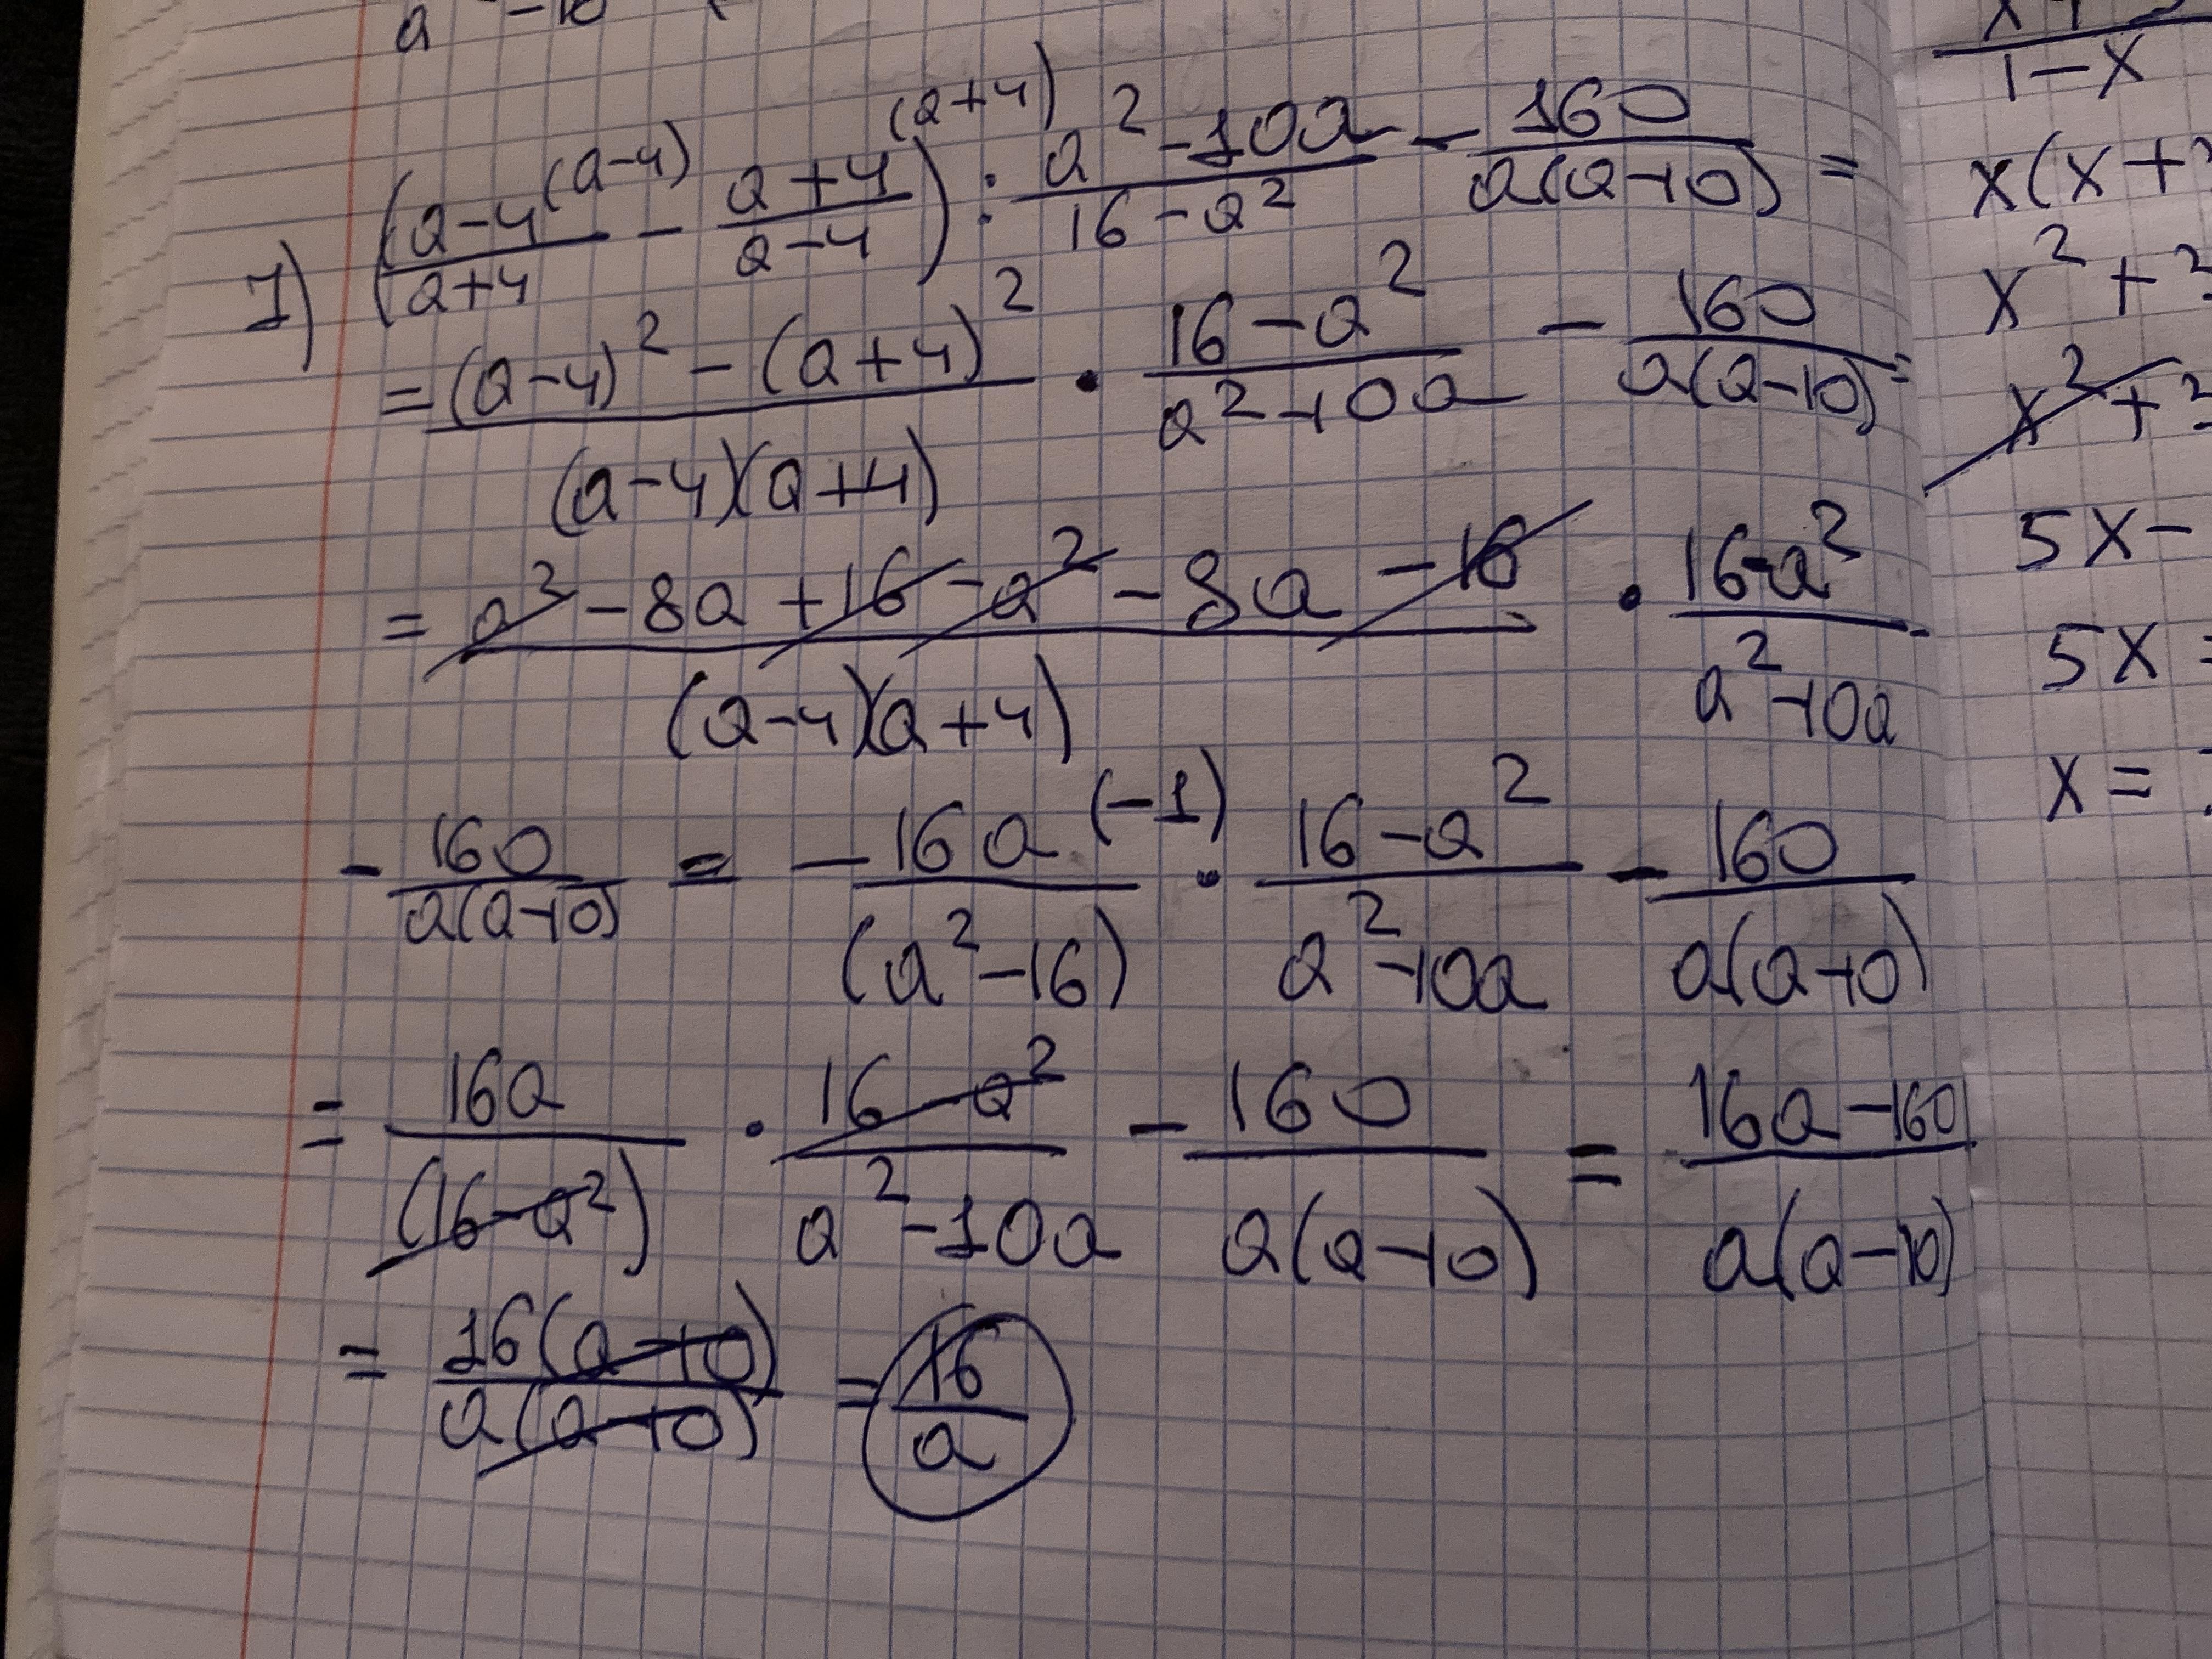 a² - 10
1) ((a-4)/(a+4) ^(a-4) - (a+4)/(a-4) ^(a+4)) : (a²-10a)/(16-a²) - 160/(a(a-10)) =
= ((a-4)² - (a+4)²)/((a-4)(a+4)) · (16-a²)/(a²-10a) - 160/(a(a-10)) =
= (a² - 8a + 16 - a² - 8a - 16)/((a-4)(a+4)) · (16-a²)/(a²-10a)
- 160/(a(a-10)) = - 16a/(a²-16) ^(-1) · (16-a²)/(a²-10a) - 160/(a(a-10))
= 16a/(16-a²) · (16-a²)/(a²-10a) - 160/(a(a-10)) = (16a-160)/(a(a-10))
= 16(a-10)/(a(a-10)) = 16/a
1-x
x(x+
x² +
x² +
5x -
5x =
x =